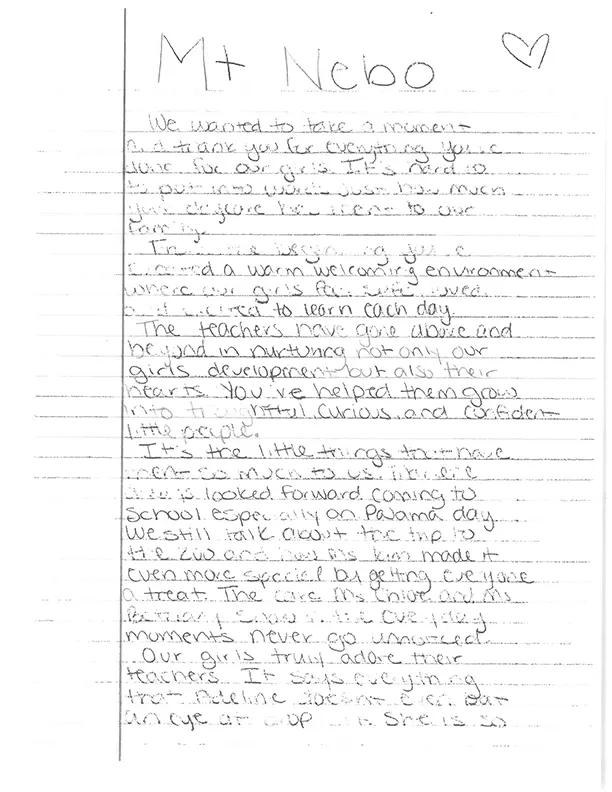 Mt Nebo
We wanted to take a moment
and thank you for everything you've
done for our girls. It's hard to
to put into words just how much
your daycare has meant to our
family.
From the beginning you've
created a warm welcoming environment
where our girls feel safe, loved,
and excited to learn each day.
The teachers have gone above and
beyond in nurturing not only our
girls development but also their
hearts. You've helped them grow
into thoughtful, curious, and confident
little people.
It's the little things that have
ment so much to us. like
looked forward coming to
school especially on Pajama day.
We still talk about the trip to
the zoo and how Ms. Kim made it
even more special by getting everyone
a treat. The care Ms Chloe and Ms
Bethany show in the everyday
moments never go unnoticed.
Our girls truly adore their
teachers. It says everything
that Adeline doesnt even bat
an eye at drop She is so